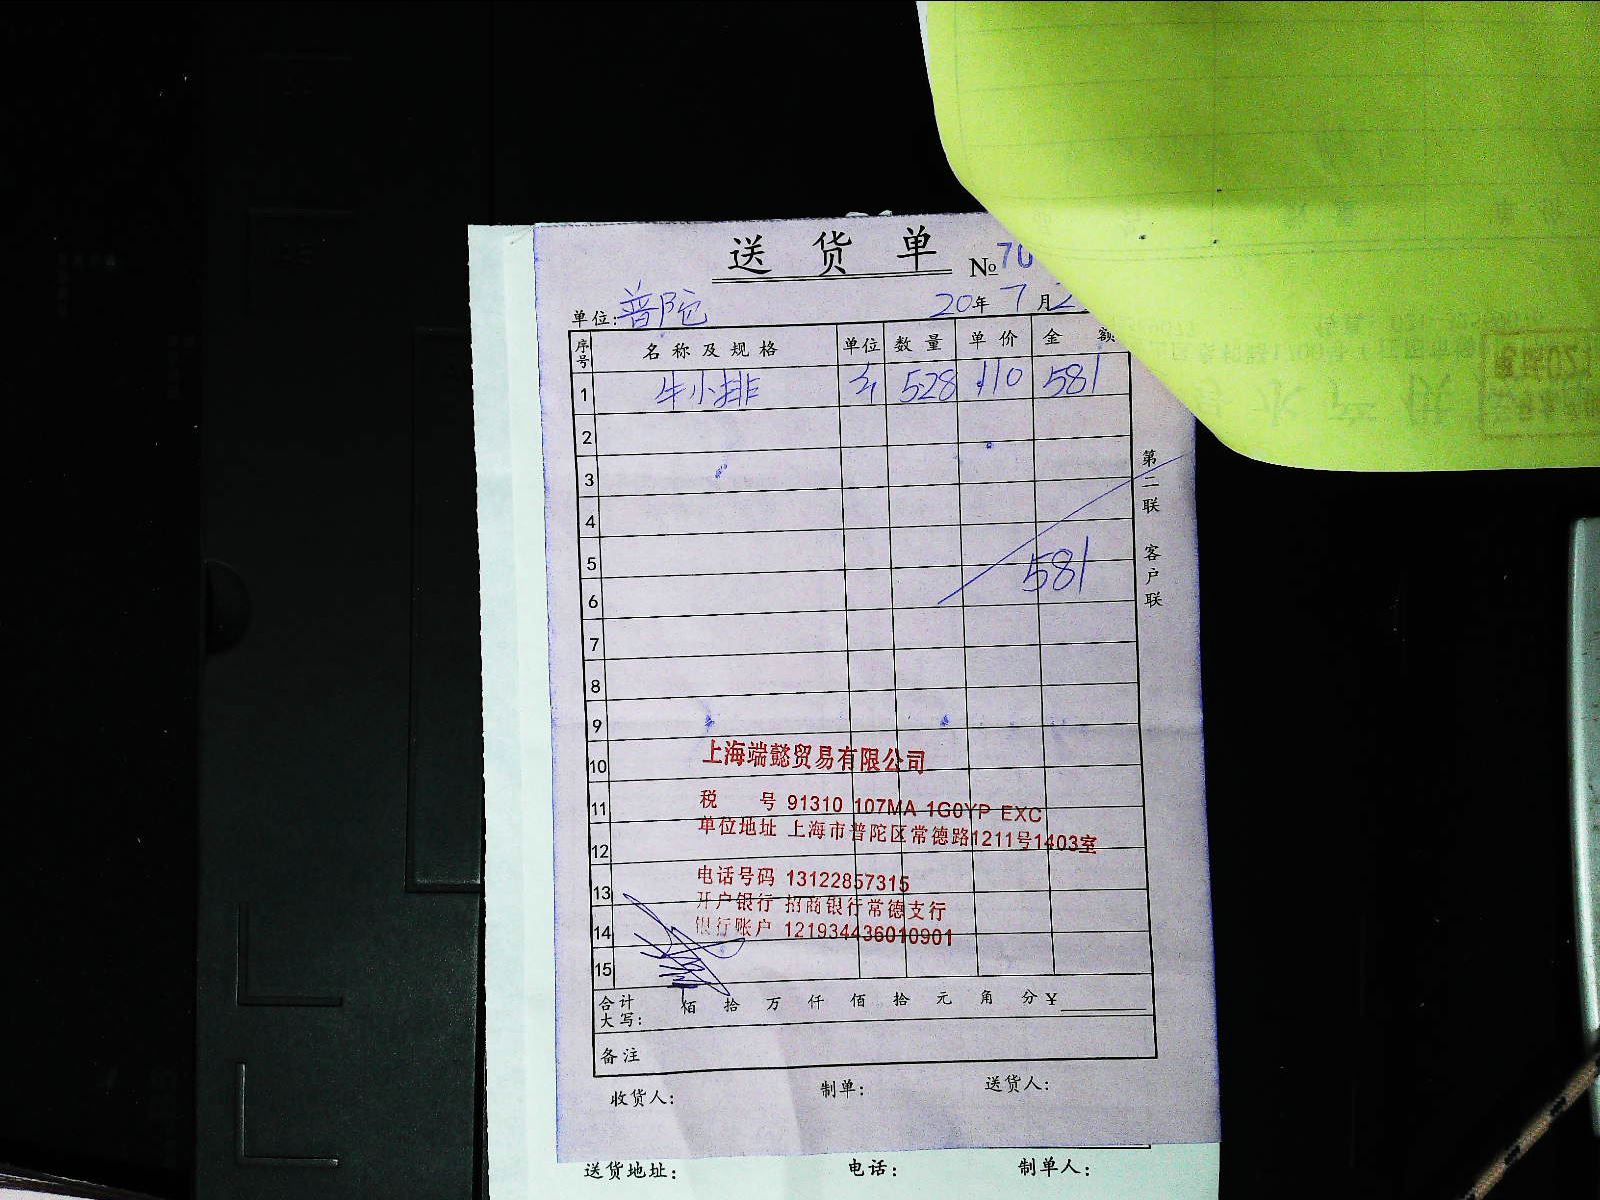 送货单 №70
单位:普陀 20年7月2
序号 名称及规格 单位 数量 单价 金额
1 牛小排 528 110 581
2
3
4
5 581
6
7
8
9
10 上海端懿贸易有限公司
11 税号 91310 107MA 1G0YP EXC
单位地址 上海市普陀区常德路1211号1403室
12
电话号码 13122857315
13 开户银行 招商银行常德支行
14 银行账户 121934436010901
15
合计大写: 佰 拾 万 仟 佰 拾 元 角 分 ¥
备注
收货人: 制单: 送货人:
第二联 客户联
送货地址: 电话: 制单人: